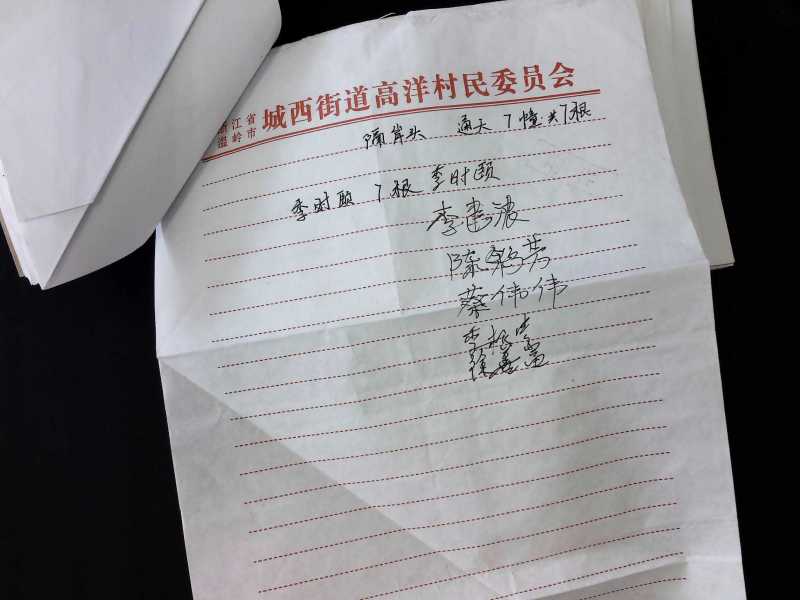 浙江省
温岭市 城西街道高洋村民委员会
隔岸头 通天 7幢共7根
季时颐 7根 李时颐
李
陈彩芳
蔡伟伟
李
徐